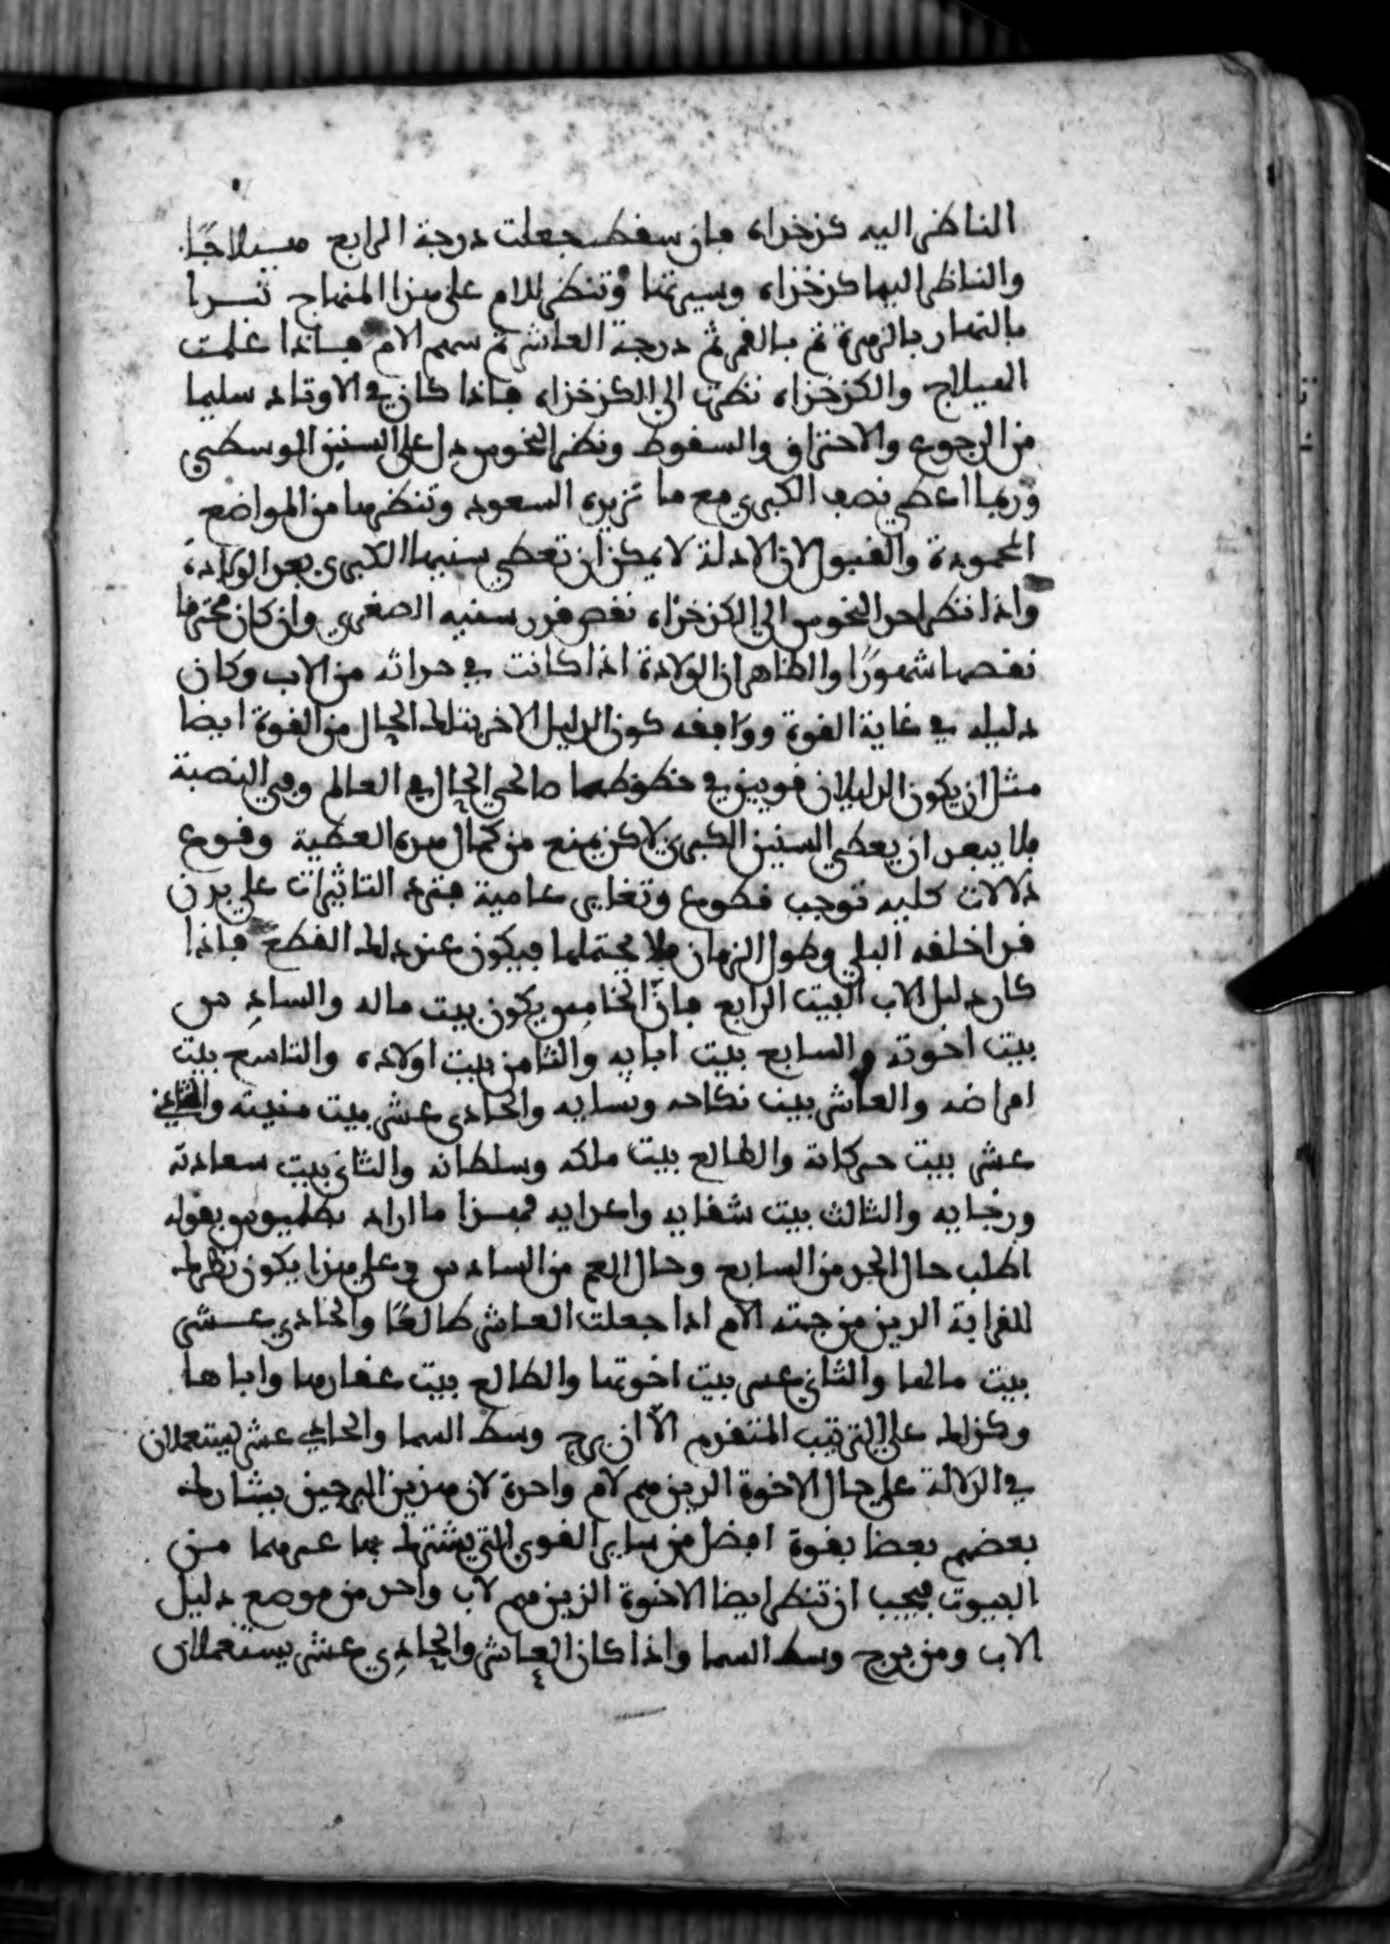 الناظر اليه كزخزاه فان سقط جعلت درجة الرابع هيلاجًا
والناظر اليها كزخزاه وسيرتها وتنظر للام على هذا المنهاج تبدا
بالنهار بالزهرة ثم بالقمر ثم درجة العاشر ثم سهم الام فاذا علمت
الهيلاج والكزخزاه نظرت الى الكزخزاه فاذا كان في الاوتاد سليما
من الرجوع والاحتراق والسقوط ونظر النحوس دل على السنين الوسطى
وربما اعطى نصف الكبرى مع ما تزيده السعود وتنظرها من المواضع
المحمودة والقبول لان الادلة لا يمكن ان تعطي سنيها الكبرى بعد الولادة
واذا نظر احد النحوس الى الكزخزاه نقص قدر سنيه الصغرى وان كان محترقا
نقصها شهورًا والظاهر ان الولادة اذا كانت في حداثه من الاب وكان
دليله في غاية القوة ووافقه كون الدليل الاخر بتلك الحال من القوة ايضا
مثل ان يكون الدليلان قويين في حظوظهما صالحي الحال في العالم وفي النصبة
فلا يبعد ان يعطي السنين الكبرى لاكن يمنع من كمال هذه العطية وقوع
دلالات كليه توجب قطوع وتغاير عامية فترد التاثيرات على بدن
قد اخلقه البلى وطول الزمان فلا يحتملها فيكون عند ذلك القطع فاذا
كان دليل الاب البيت الرابع فان الخامس يكون بيت ماله والسادس
بيت اخوته والسابع بيت ابايه والثامن بيت اولاده والتاسع بيت
امراضه والعاشر بيت نكاحه ونسايه والحادي عشر بيت منيته والثاني
عشر بيت حركاته والطالع بيت ملكه وسلطانه والثاني بيت سعادته
ورجايه والثالث بيت شقايه واعدايه فهذا ما اراد بطلميوس بقوله
اطلب حال الجد من السابع وحال العم من السادس وعلى هذا يكون نظرك
للقرابة الذين من جهة الام اذا جعلت العاشر طالعًا والحادي عشر
بيت مالها والثاني عشر بيت اخوتها والطالع بيت عقارها واباها
وكذلك على الترتيب المتقدم الا ان برج وسط السما والحادي عشر يستعملان
في الدلالة على حال الاخوة الذين هم لام واحدة لان هذين البرجين يشارك
بعضهم بعضا بقوة افضل من ساير القوى التي يشترك بها غيرهما من
البيوت فيجب ان تنظر ايضا الاخوة الذين هم لاب واحد من موضع دليل
الاب ومن برج وسط السما واذا كان العاشر والحادي عشر يستعملان